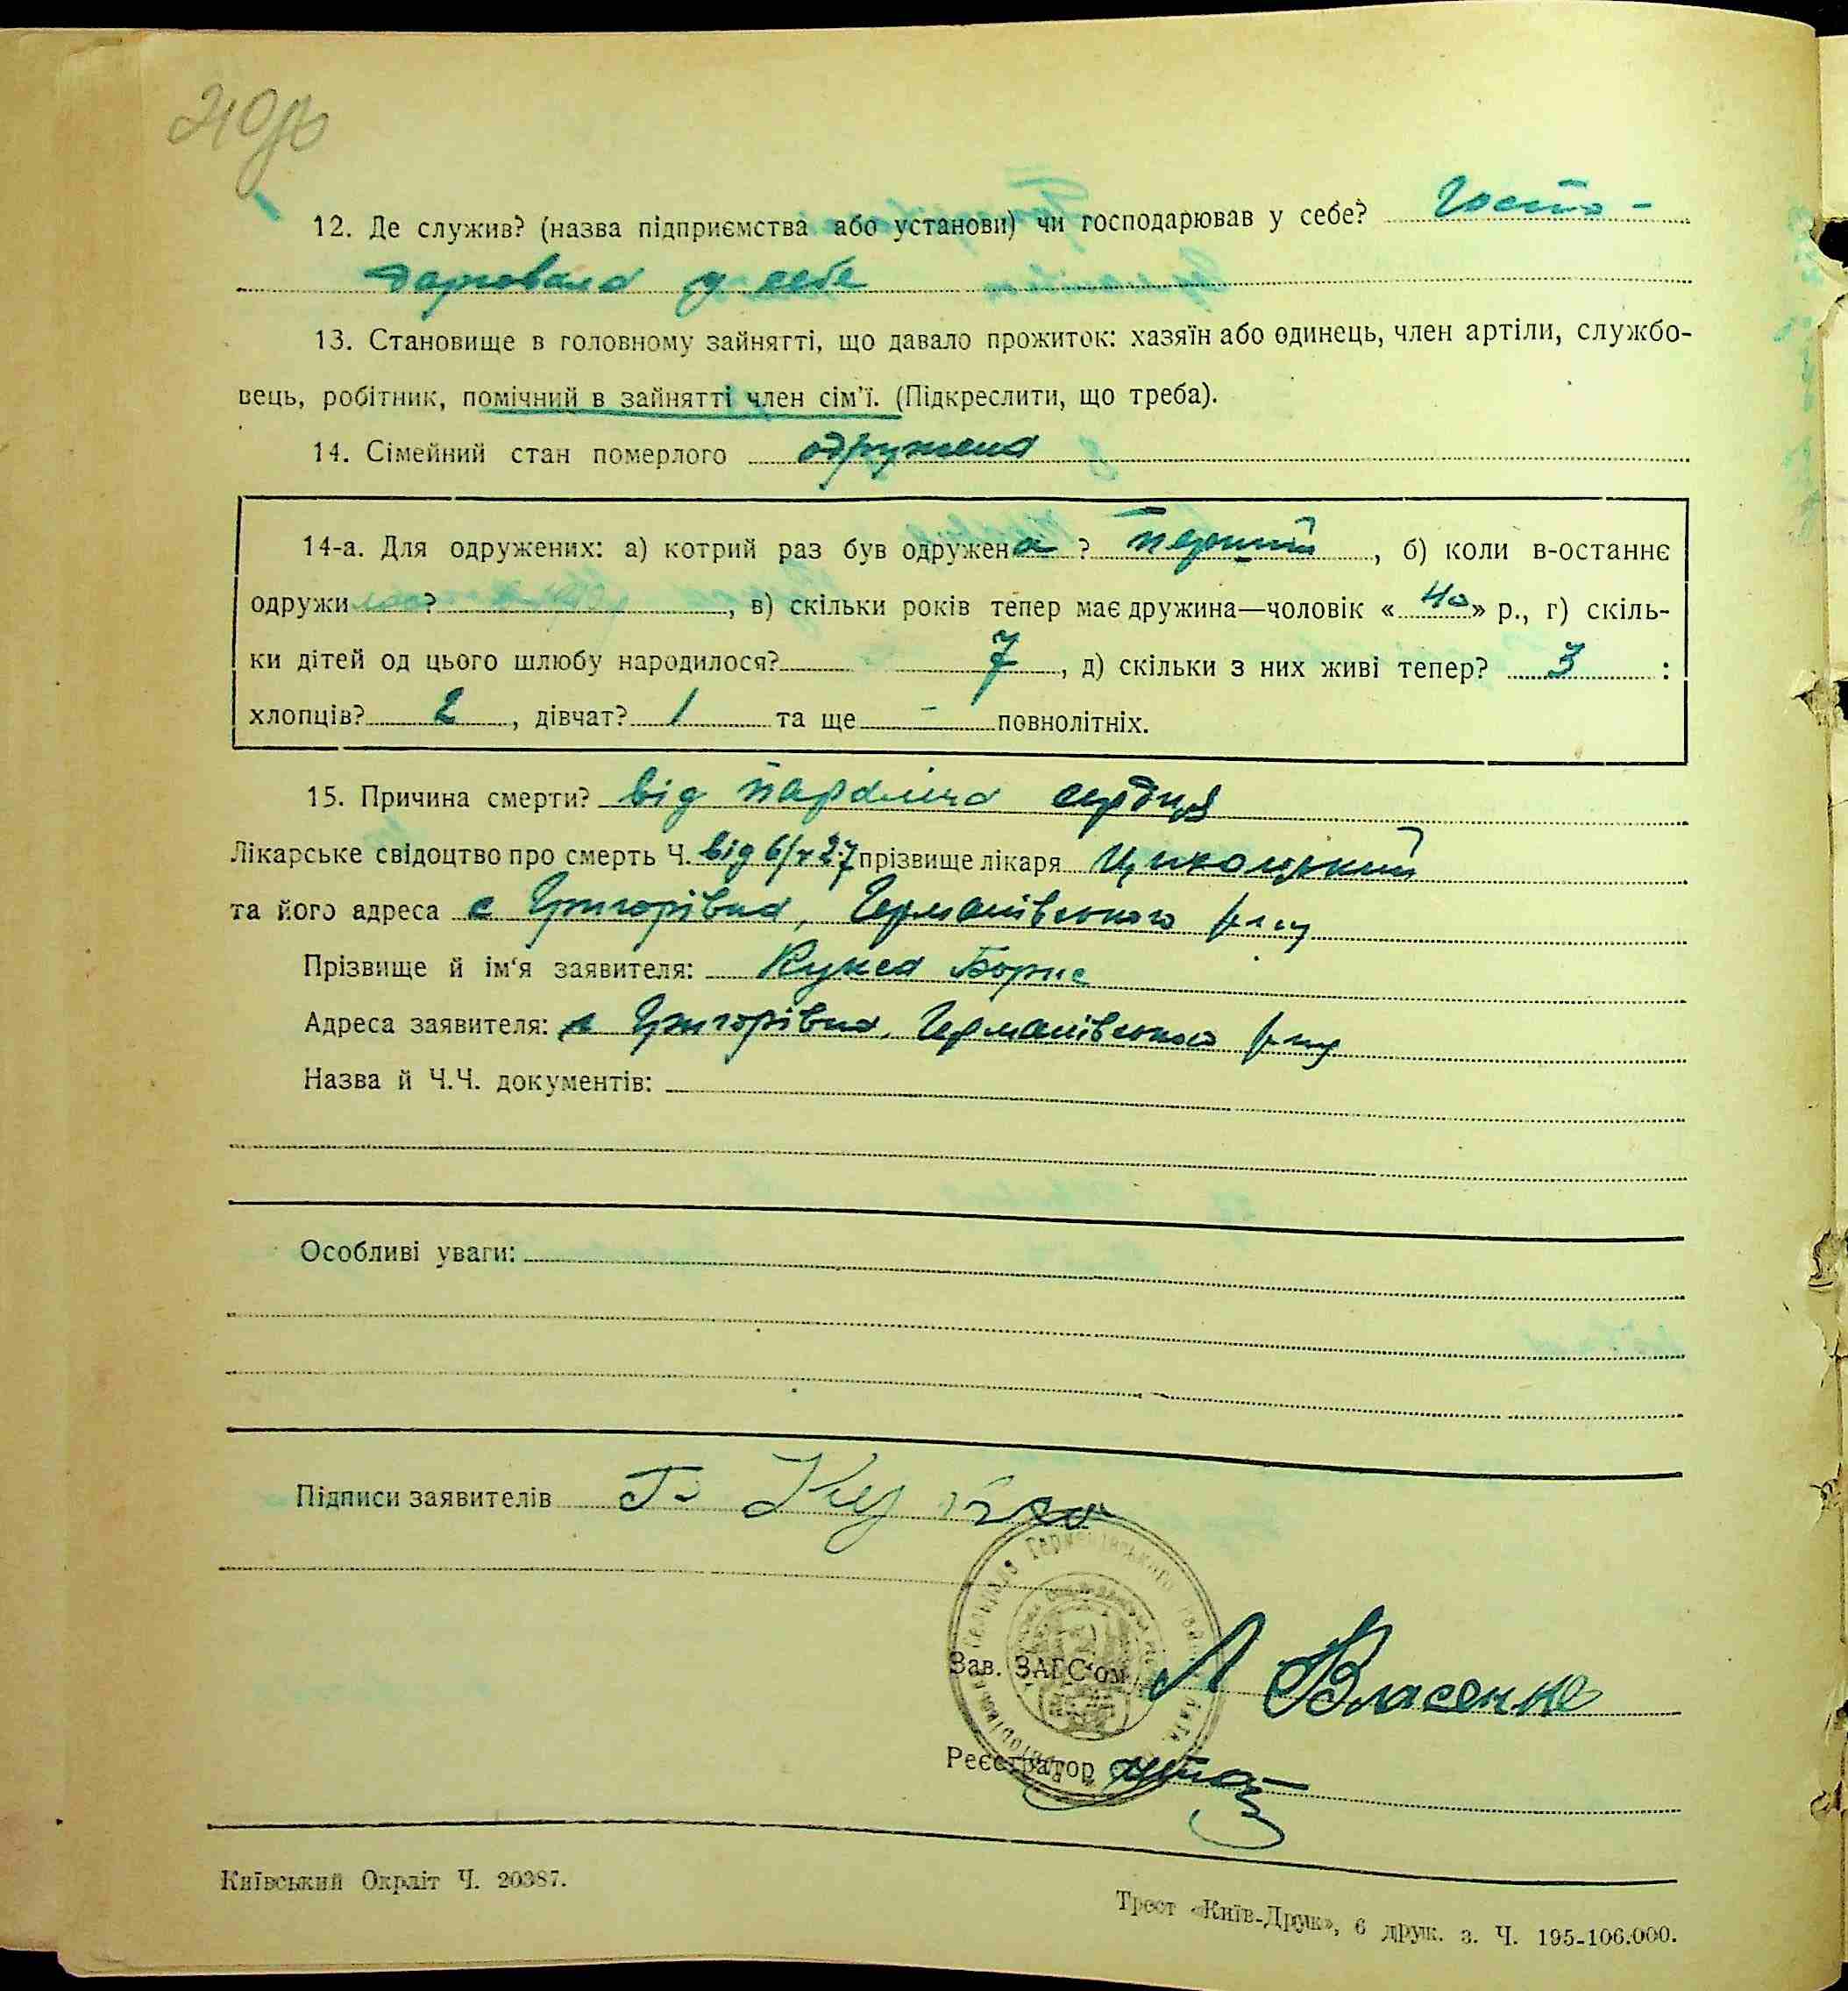 12. Де служив? (назва підприємства або установи) чи господарював у себе? Госпо-
дарювала у себе
13. Становище в головному зайнятті, що давало прожиток: хазяїн або одинець, член артіли, службо-
вець, робітник, помічний в зайнятті член сім'ї. (Підкреслити, що треба).
14. Сімейний стан померлого одружена
14-а. Для одружених: а) котрий раз був одружена ? перший, б) коли в-останнє
одружи ?, в) скільки років тепер має дружина—чоловік «40» р., г) скіль-
ки дітей од цього шлюбу народилося? 7, д) скільки з них живі тепер? 3 :
хлопців? 2, дівчат? 1 та ще - повнолітніх.
15. Причина смерти? від параліча сердця
Лікарське свідоцтво про смерть Ч. від 6/х 27 прізвище лікаря
та його адреса с Григорівка, Германівського р-ну
Прізвище й ім'я заявителя: Кукса Борис
Адреса заявителя: с Григорівка, Германівського р-ну
Назва й Ч.Ч. документів:
Особливі уваги:
Підписи заявителів Б Кукса
Зав. ЗАГС'ом Л Власенко
Реєстратор
Київський Окрліт Ч. 20387.
Трест «Київ-Друк», 6 друк. з. Ч. 195-106.000.